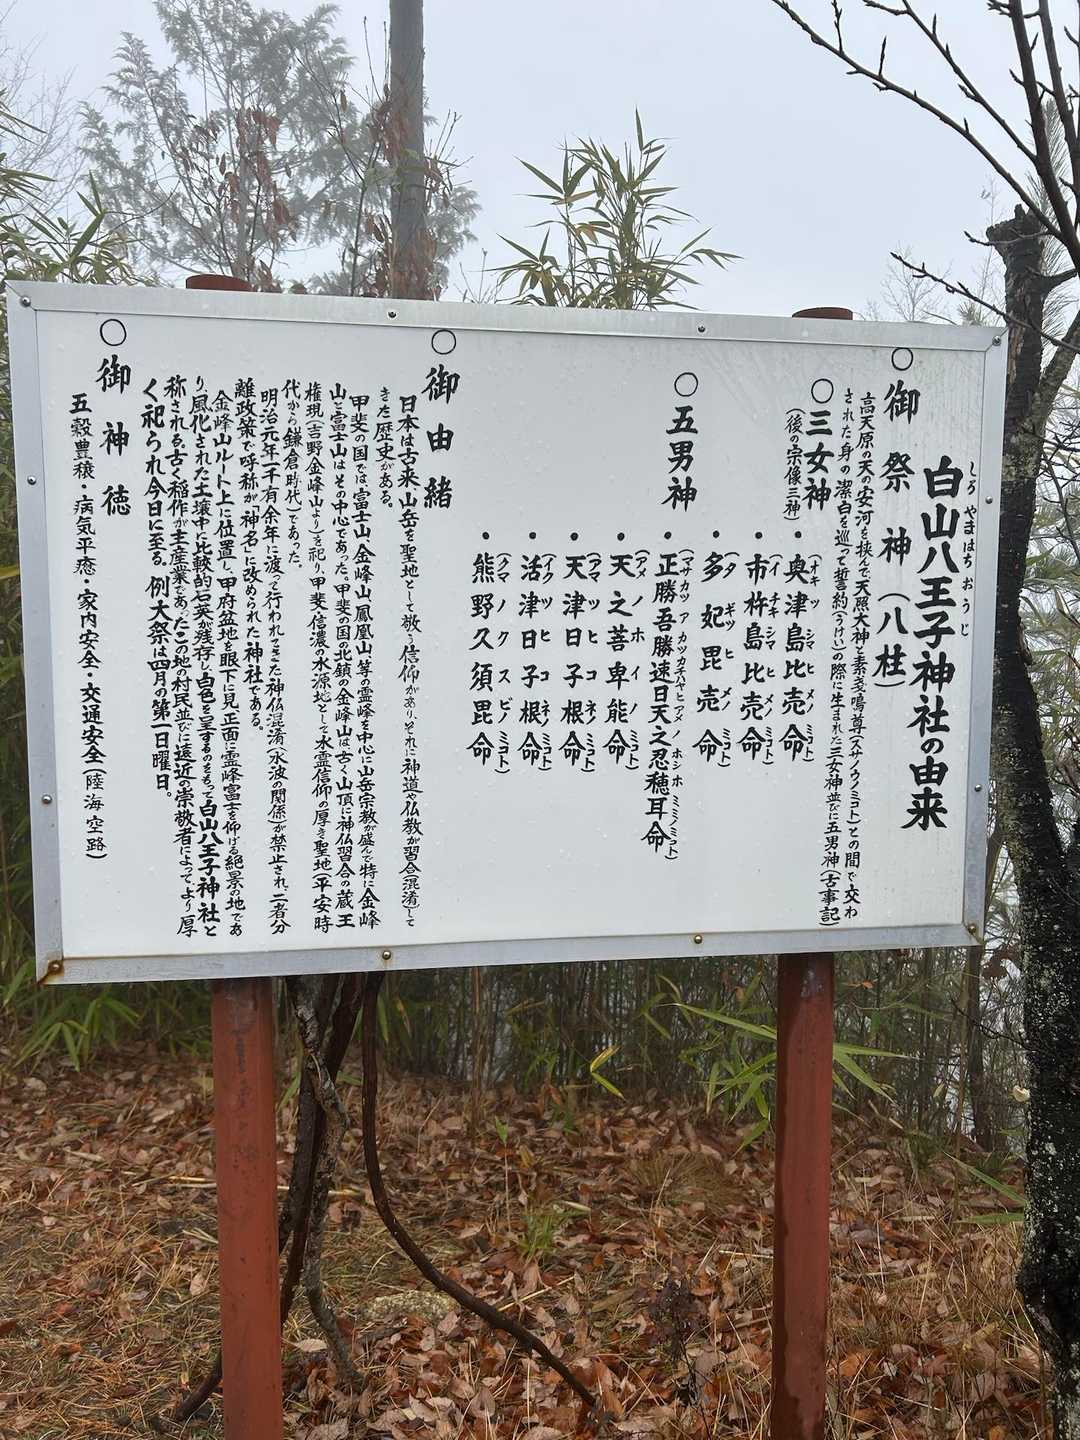 白山八王子神社の由来
しろやまはちおうじ
○御祭神(八柱)
高天原の天の安河を挟んで天照大神と素戔鳴尊(スサノウノミコト)との間で交わ
された身の潔白を巡って誓約(うけい)の際に生まれた三女神並びに五男神(古事記)
○三女神
(後の宗像三神)
・奥津島比売命
(オキツシマヒメノミコト)
・市杵島比売命
(イチキシマヒメノミコト)
・多妃毘売命
(タギツヒメノミコト)
○五男神
・正勝吾勝速日天之忍穂耳命
(マサカツアカツカチハヤヒアメノホシホミミノミコト)
・天之菩卑能命
(アメノホイノミコト)
・天津日子根命
(アマツヒコネノミコト)
・活津日子根命
(イクツヒコネノミコト)
・熊野久須毘命
(クマノクスビノミコト)
○御由緒
日本は古来、山岳を聖地として敬う信仰があり、それに神道や仏教が習合(混淆)して
きた歴史がある。
甲斐の国では、富士山、金峰山、鳳凰山、等の霊峰を中心に山岳宗教が盛んで特に金峰
山と富士山はその中心であった。甲斐の国の北鎮の金峰山は古く山頂に神仏習合の蔵王
権現(吉野金峰山より)を祀り、甲斐、信濃の水源地として水霊信仰の厚き聖地(平安時
代から鎌倉時代)であった。
明治元年、千有余年に渡って行われてきた神仏混淆(水波の関係)が禁止され、二者分
離政策で呼称が「神名」に改められた神社である。
金峰山ルート上に位置し、甲府盆地を眼下に見、正面に霊峰富士を仰げる絶景の地であ
り、風化された土壌中に比較的石英が残存し白色を呈するのをもって白山八王子神社と
称される。古く稲作が主産業であったこの地の村民並びに遠近の崇敬者によって、より厚
く祀られ今日に至る。例大祭は四月の第一日曜日。
○御神徳
五穀豊穣・病気平癒・家内安全・交通安全(陸海空路)